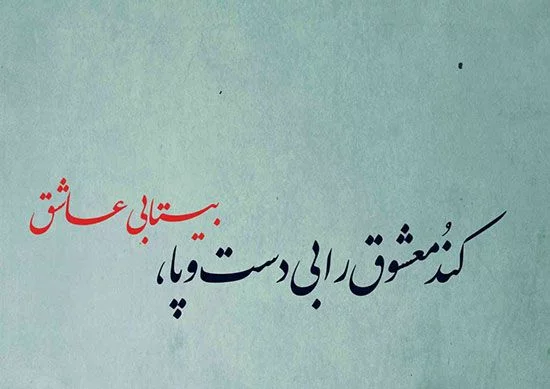 کنُد معشوق را بی دست و پا،
بیتابی عاشق